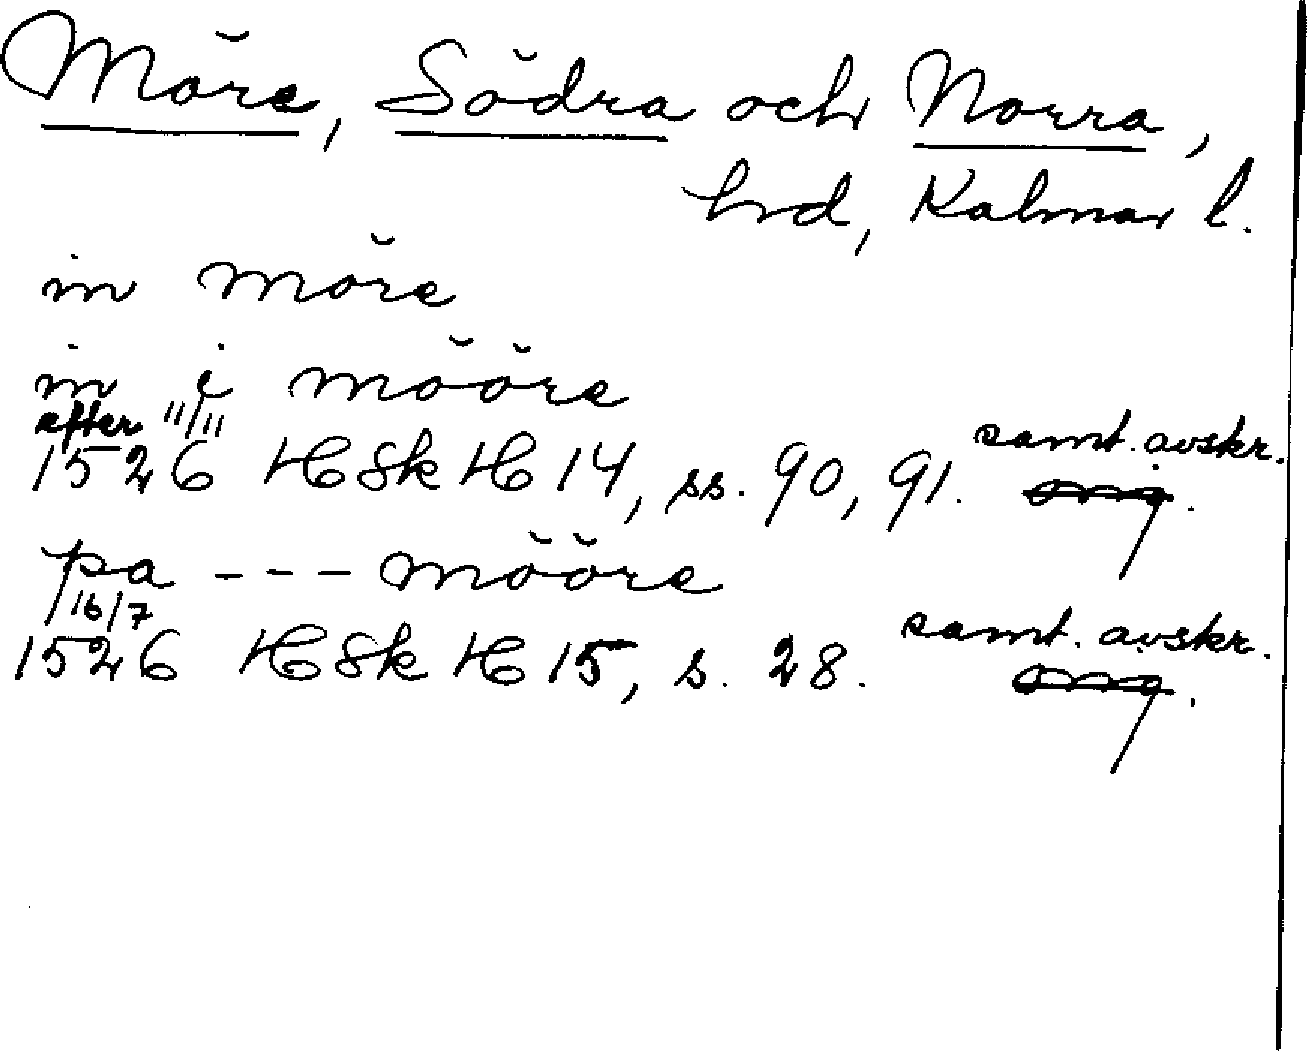 Möre, Södra och Norra,
hrd, Kalmar l.
in möre
in i mööre
efter 11/11
1526 HSk H 14, ss. 90, 91. samt. avskr.
pa --- mööre
16/7
1526 HSk H 15, s. 28. samt. avskr.